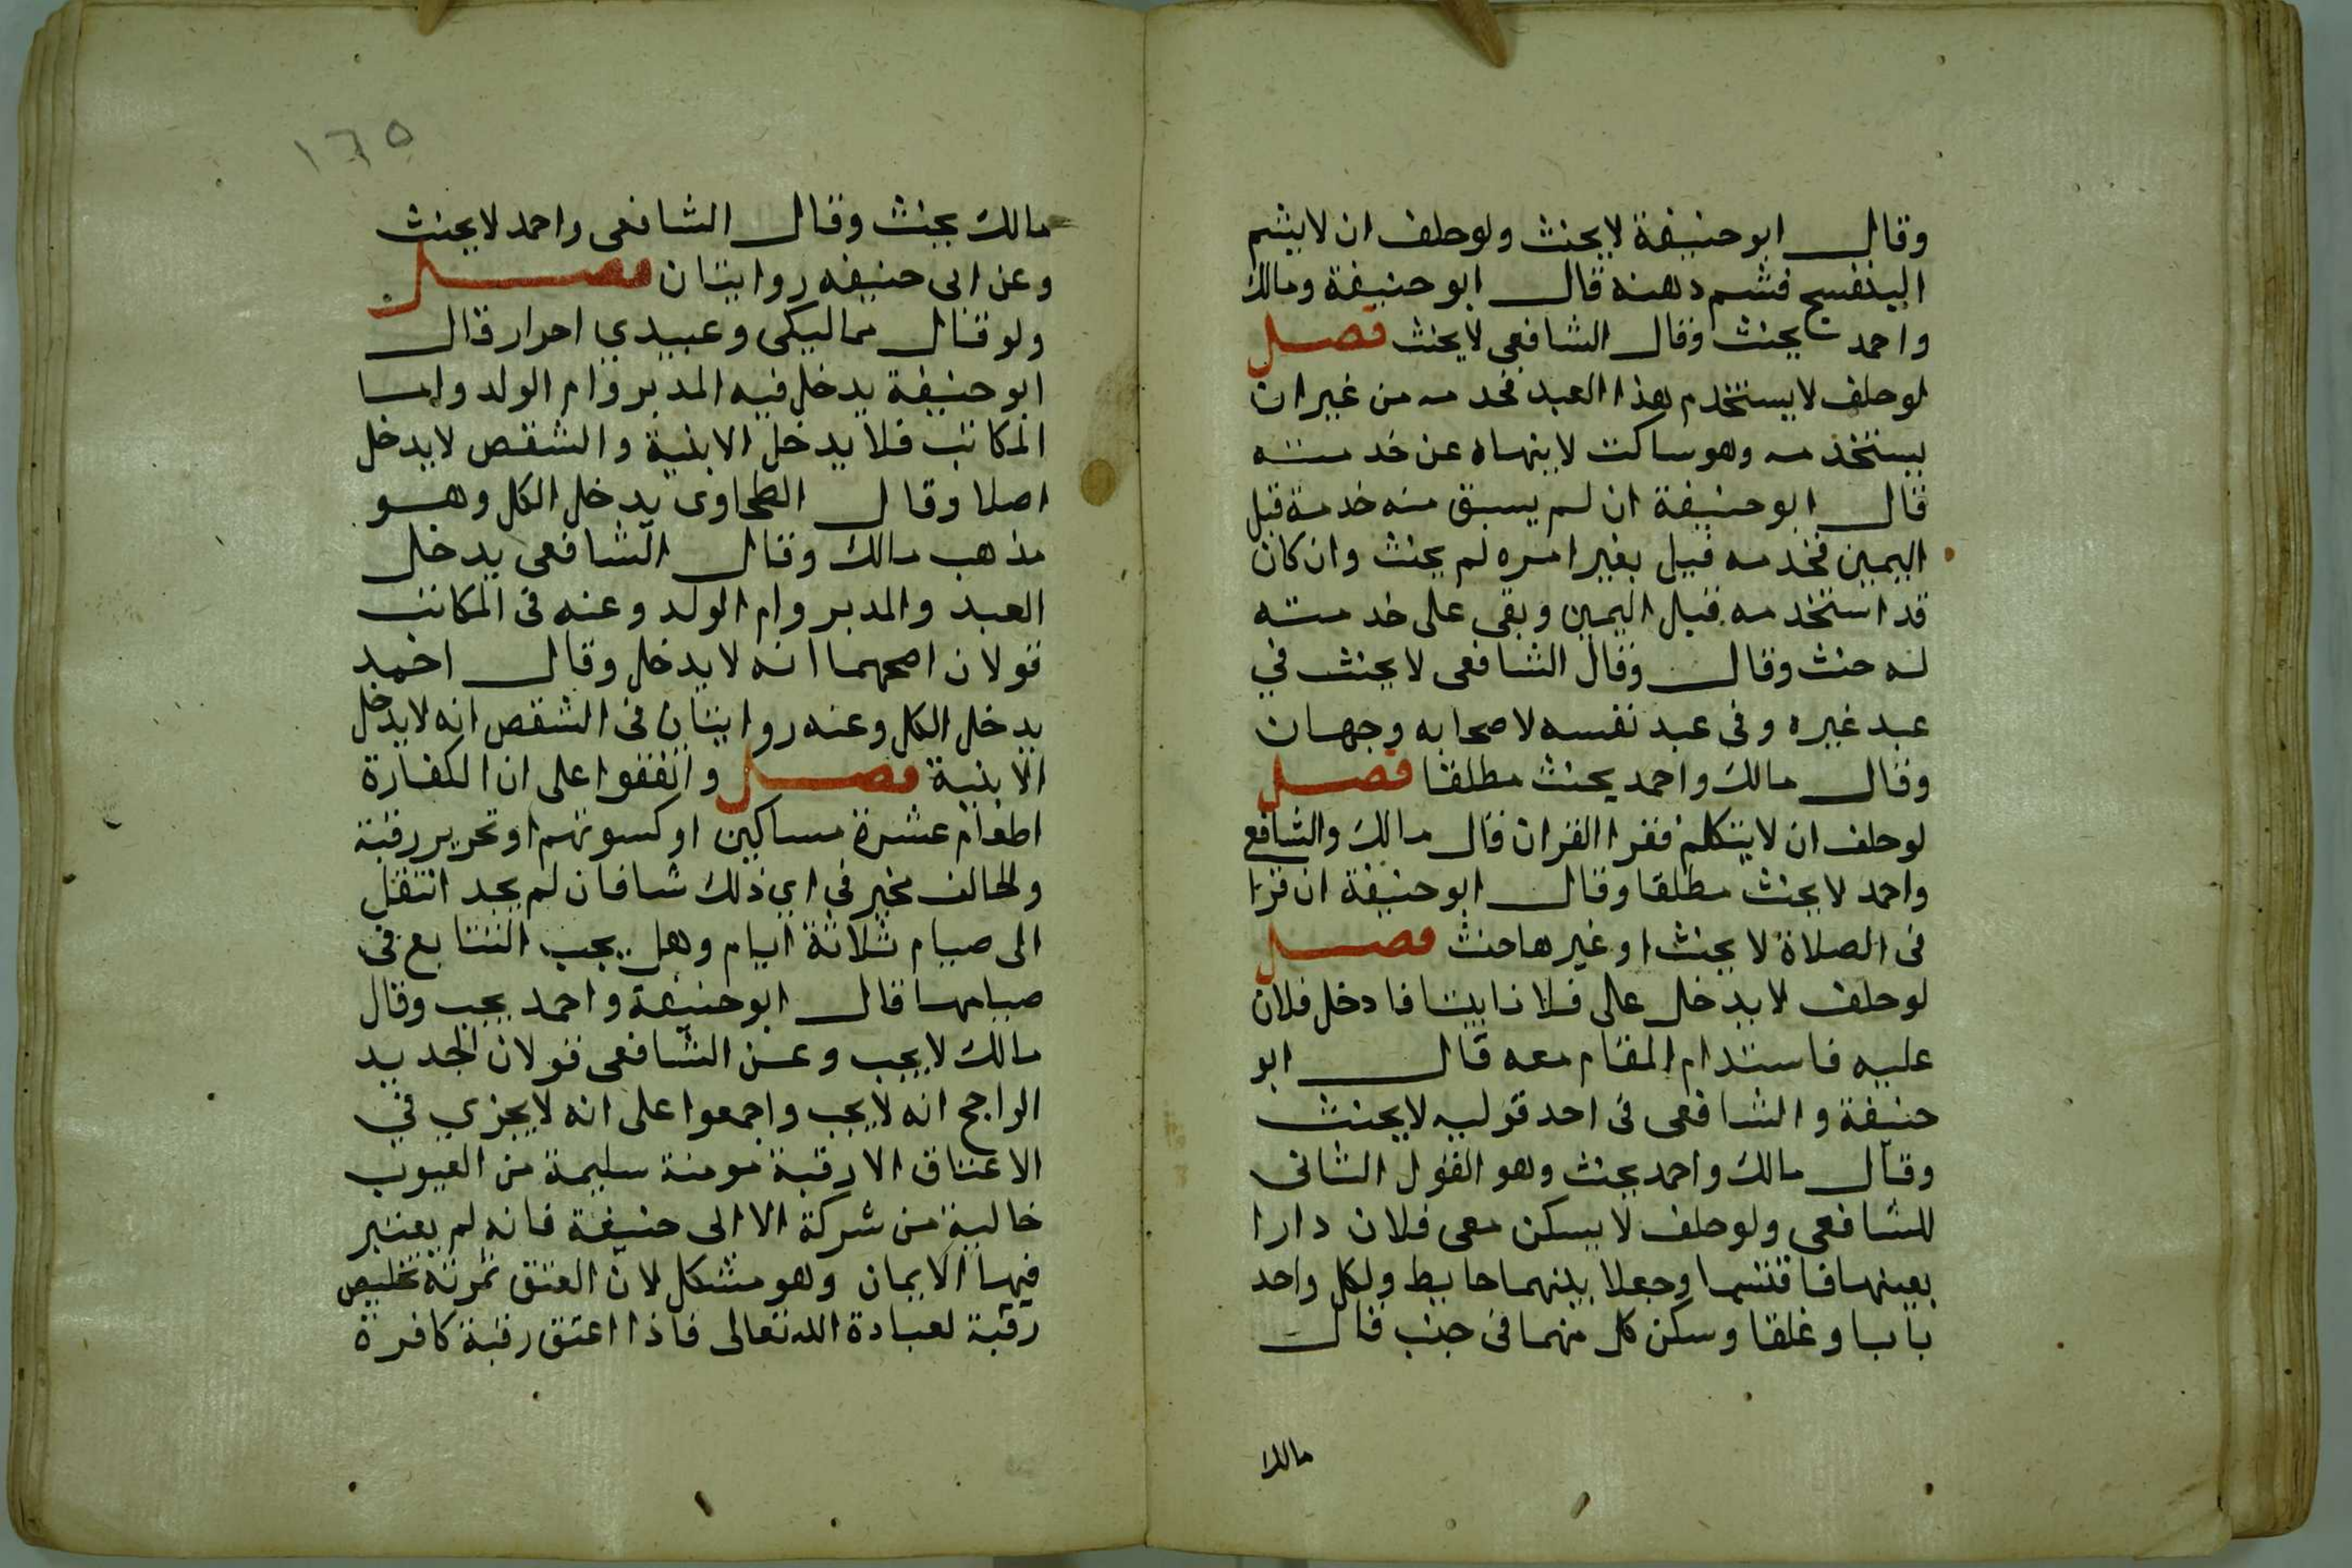 وقال ابو حنيفة لا يحنث ولو حلف ان لا يشم
البنفسج فشم دهنه قال ابو حنيفة ومالك
واحمد يحنث وقال الشافعى لا يحنث فصل
لو حلف لا يستخدم هذا العبد فخدمه من غير ان
يستخدمه وهو ساكت لا ينهاه عن خدمته
قال ابو حنيفة ان لم يسبق منه خدمة قبل
اليمين فخدمه قبل بغير امره لم يحنث وان كان
قد استخدمه قبل اليمين وبقى على خدمته
له حنث وقال وقال الشافعى لا يحنث في
عبد غيره وفى عبد نفسه لاصحابه وجهان
وقال مالك واحمد يحنث مطلقا فصل
لو حلف ان لا يتكلم فقرا القران قال مالك والشافع
واحمد لا يحنث مطلقا وقال ابو حنيفة ان قرا
فى الصلاة لا يحنث او غيرها حنث فصل
لو حلف لا يدخل على فلانا بيتا فادخل فلان
عليه فاستدام المقام معه قال ابو
حنيفة والشافعى فى احد قوليه لا يحنث
وقال مالك واحمد يحنث وهو القول الثانى
للشافعى ولو حلف لا يسكن معى فلان دارا
بعينها فاقتسما وجعلا بينهما حايط ولكل واحد
بابا وغلقا وسكن كل منهما فى جنب قال
مالك
١٦٥
مالك يحنث وقال الشافعى واحمد لا يحنث
وعن ابى حنيفه روايتان فصل
ولو قال مماليكى وعبيدي احرار قال
ابو حنيفة يدخل فيه المدبر وام الولد واما
المكاتب فلا يدخل الا بنية والشقص لا يدخل
اصلا وقال الطحاوى يدخل الكل وهو
مذهب مالك وقال الشافعى يدخل
العبد والمدبر وام الولد وعنه فى المكاتب
قولان اصحهما انه لا يدخل وقال احمد
يدخل الكل وعنه روايتان فى الشقص انه لا يدخل
الا بنية فصل واتفقوا على ان الكفارة
اطعام عشرة مساكين او كسوتهم او تحرير رقبة
والحالف مخير في اي ذلك شا فان لم يجد انتقل
الى صيام ثلاثة ايام وهل يجب التتابع فى
صيامها قال ابو حنيفة واحمد يجب وقال
مالك لا يجب وعن الشافعى قولان الجديد
الراجح انه لا يجب واجمعوا على انه لا يجزي في
الاعتاق الا رقبة مومنة سليمة من العيوب
خالية من شركة الا الى حنيفة فانه لم يعتبر
فيها الايمان وهو مشكل لان العتق ثمرته تخليص
رقبة لعبادة الله تعالى فاذا اعتق رقبة كافرة